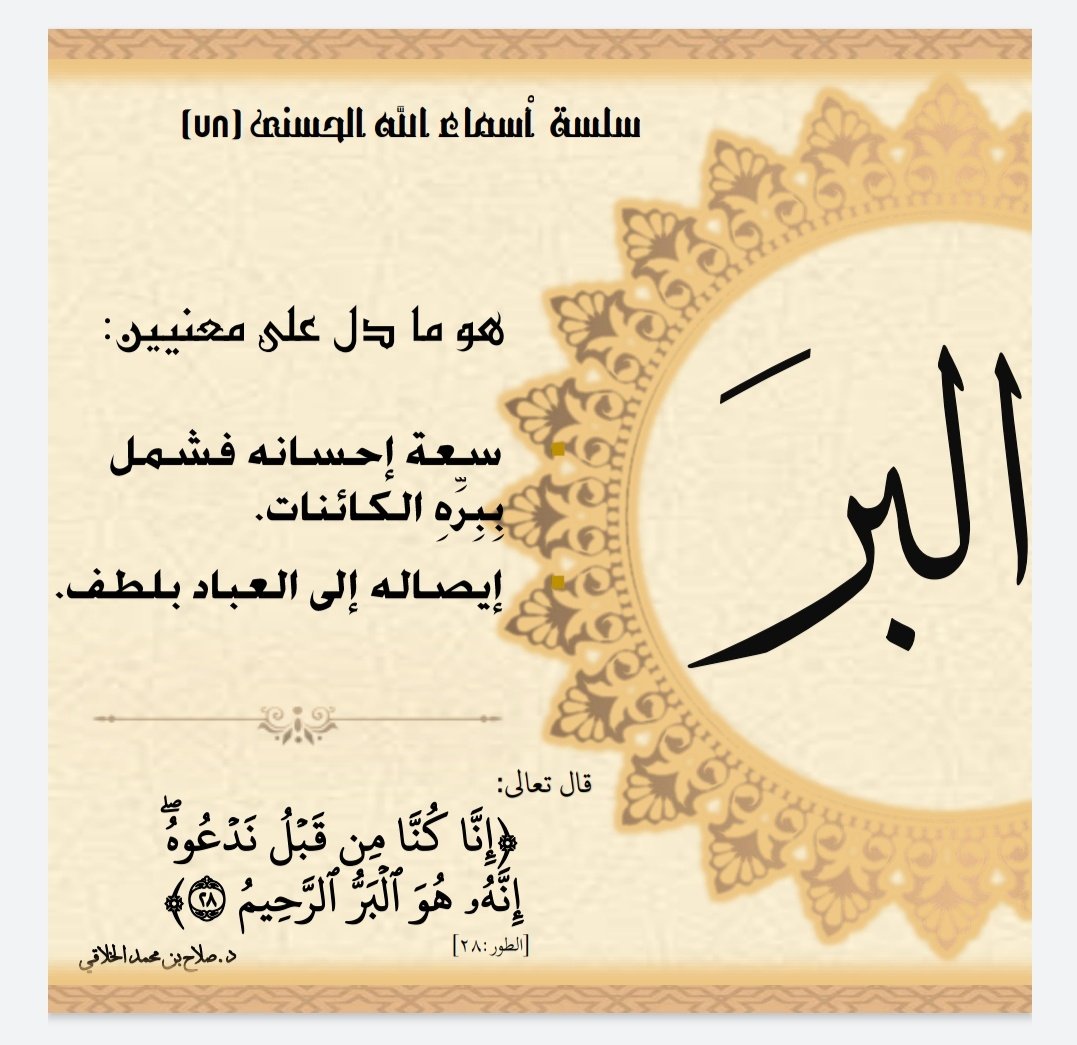 سلسة أسماء الله الحسنى (٧٨)
البرَ
هو ما دل على معنيين:
سعة إحسانه فشمل
بِبِرِّهِ الكائنات.
إيصاله إلى العباد بلطف.
قال تعالى:
﴿إِنَّا كُنَّا مِن قَبۡلُ نَدۡعُوهُۖ
إِنَّهُۥ هُوَ ٱلۡبَرُّ ٱلرَّحِيمُ ٢٨﴾
[الطور:٢٨]
د. صلاح بن محمد الخلاقي